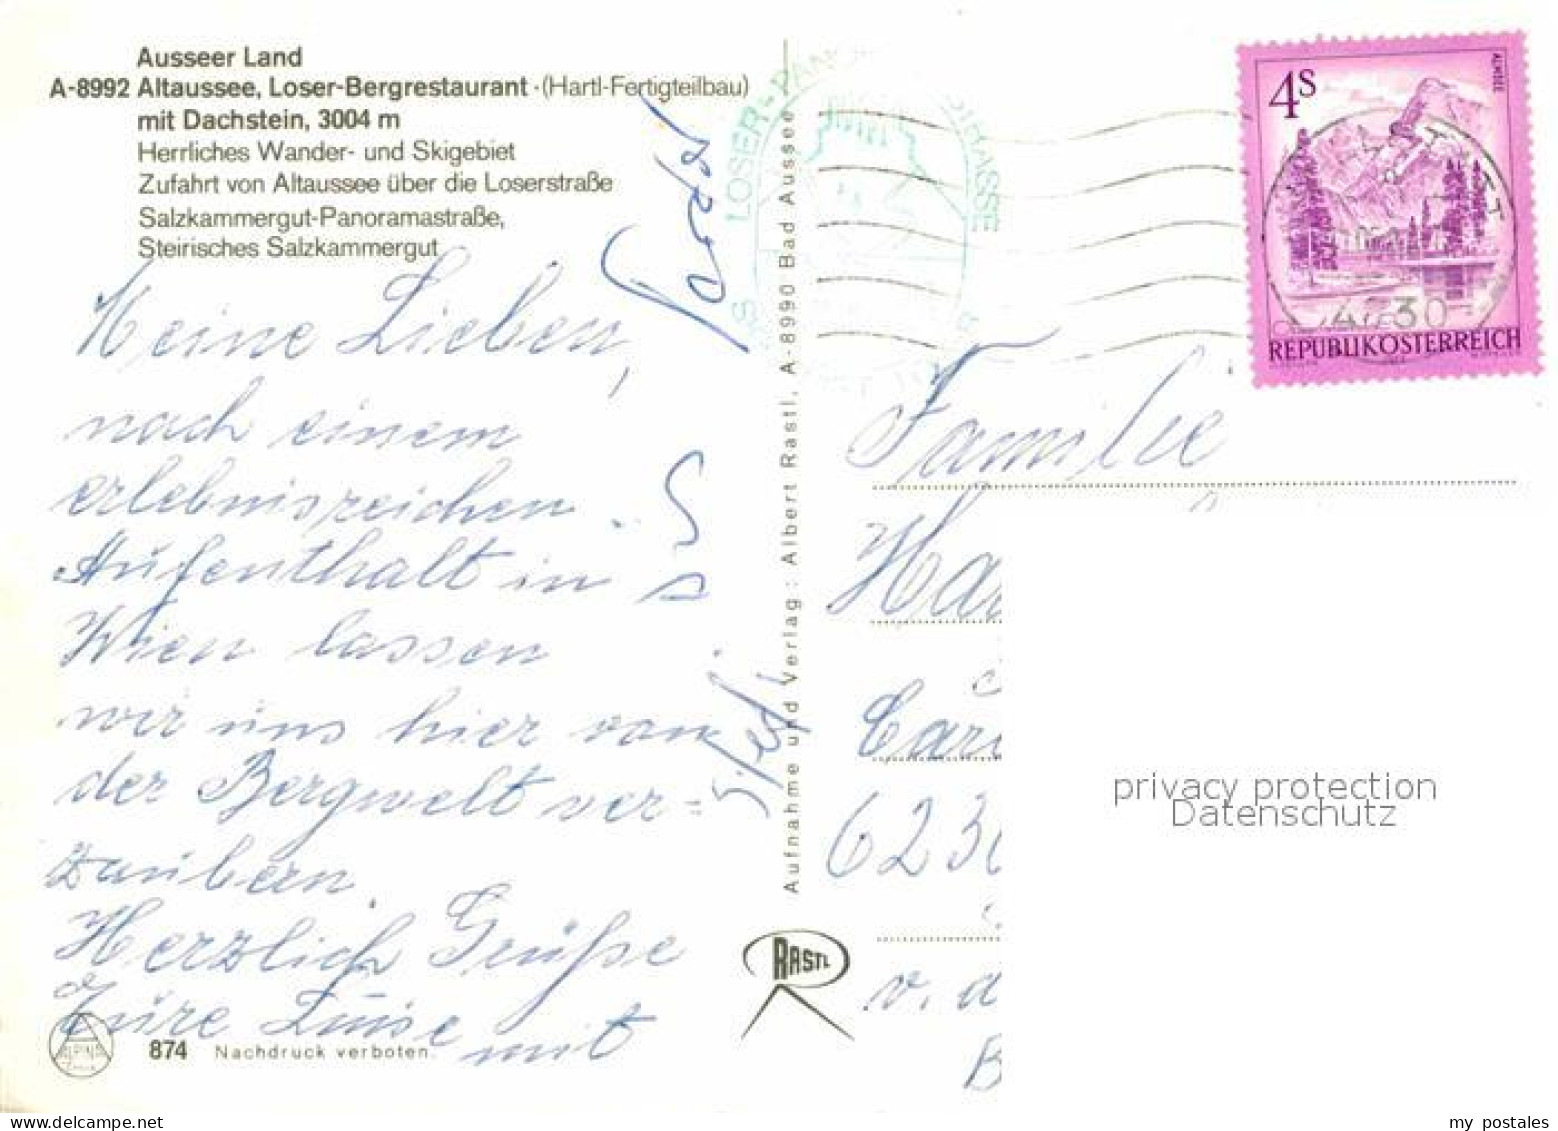 Ausseer Land
A-8992 Altaussee, Loser-Bergrestaurant · (Hartl-Fertigteilbau)
mit Dachstein, 3004 m
Herrliches Wander- und Skigebiet
Zufahrt von Altaussee über die Loserstraße
Salzkammergut-Panoramastraße,
Steirisches Salzkammergut
Meine Lieben,
nach einem
erlebnisreichen
Aufenthalt in
Wien lassen
wir uns hier von
der Bergwelt ver=
zaubern.
Herzlich Grüße
Eure Luise mit
ALPINA
874 Nachdruck verboten.
Aufnahme und Verlag: Albert Rastl, A-8990 Bad Aussee
RASTL
LOSER-PANO
STRASSE
4S
ALMSEE
REPUBLIK ÖSTERREICH
Familie
Ha
Car
623
v. d
B
privacy protection
Datenschutz
my postales